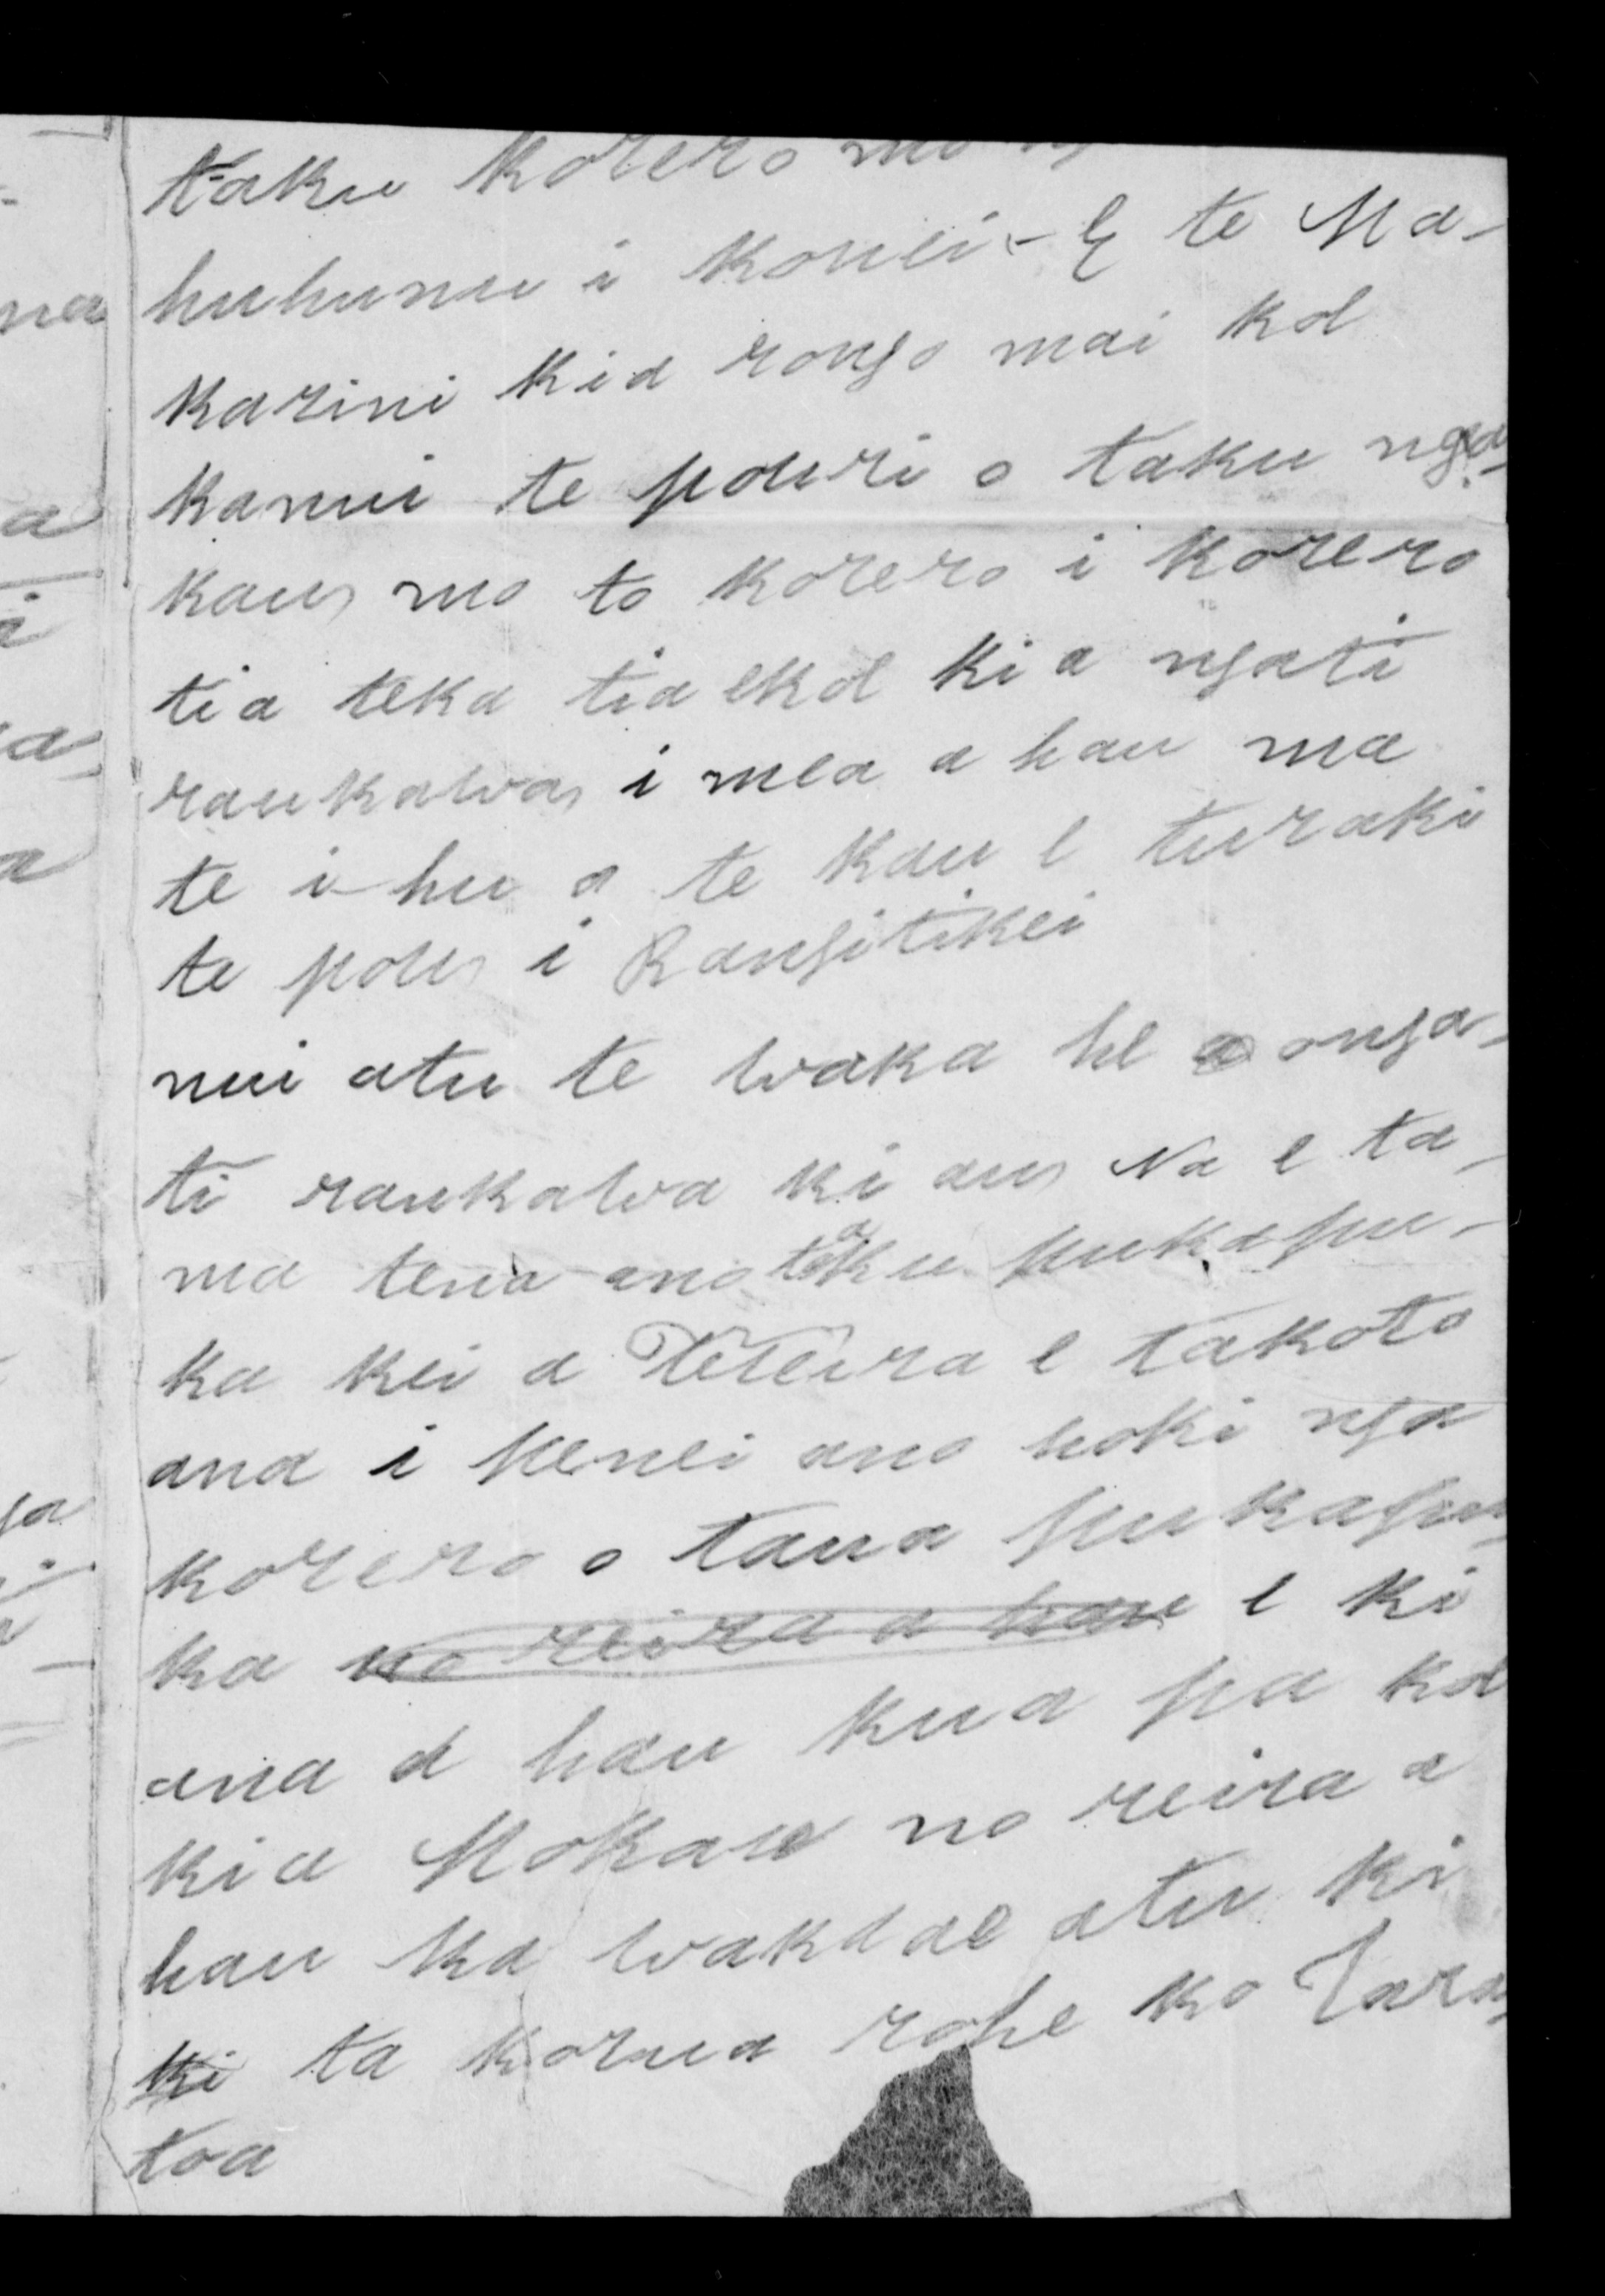 taku korero mo
huhunu i konei - E te Ma-
karini kia rongo mai koe
kanui te pouri o taku nga-
kau, mo to korero i korero
tia teka tia ekoe ki a ngati
raukawa, i mea a hau ma
te i-hu o te kau e turaki
te pou, i Rangitikei
nui atu te waka he a onga-
ti raukawa ki au, Na e ta-
ma tena ano taku pukapu-
ka kei a Teteira e takoto
ana i kenei ano hoki nga
korero o taua pukapu
ka no reira a hau e ki
ana a hau kua pa koe
kia Mokau no reira a
hau ka wakaae atu ki
ki ta korua rohe ko Tara
toa